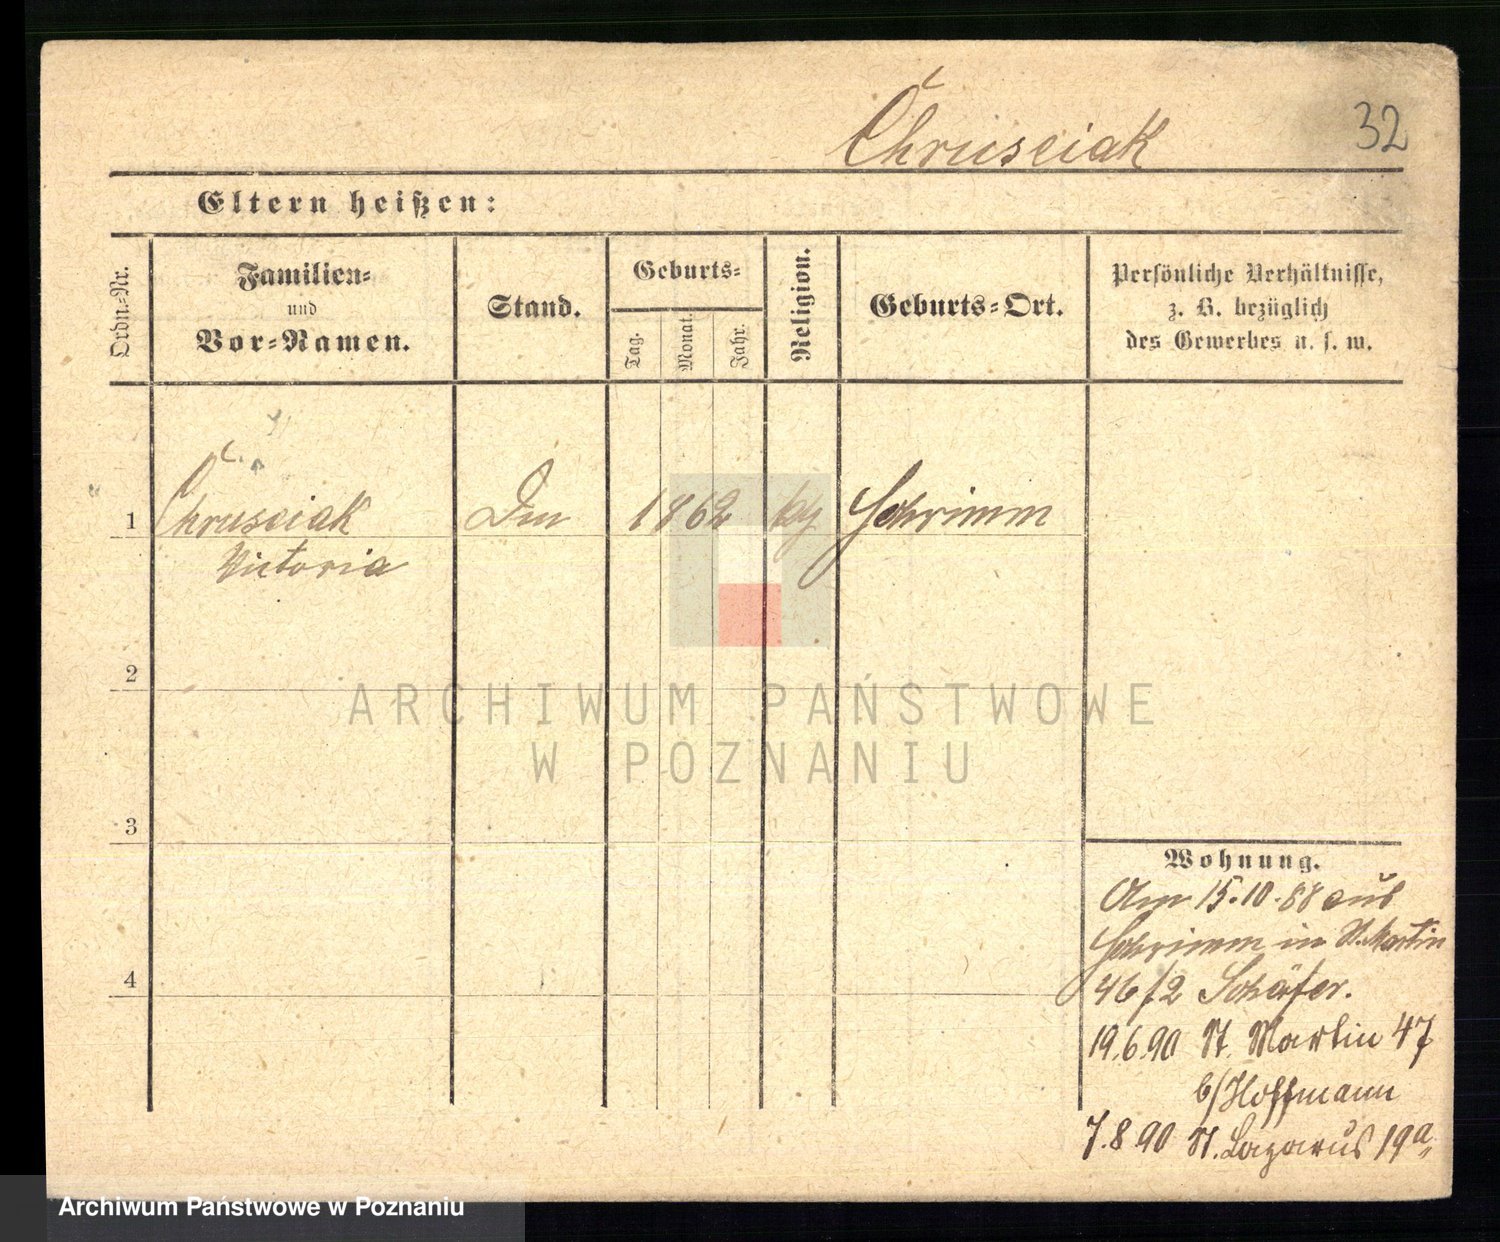 Chrusciak
32
Eltern heißen:
Ordn.-Nr.
Familien-
und
Vor-Namen.
Stand.
Geburts-
Tag.
Monat.
Jahr.
Religion.
Geburts-Ort.
Persönliche Verhältnisse,
z. B. bezüglich
des Gewerbes u. s. w.
1 Chrusciak 1862 Schrimm
Victoria
2
3
4
ARCHIWUM PAŃSTWOWE
W POZNANIU
Wohnung.
Am 15.10.88 aus
Schrimm in St. Martin
46/2 Schäfer.
19.6.90 St. Martin 47
b/Hoffmann
7.8.90 St. Lazarus 19a
Archiwum Państwowe w Poznaniu